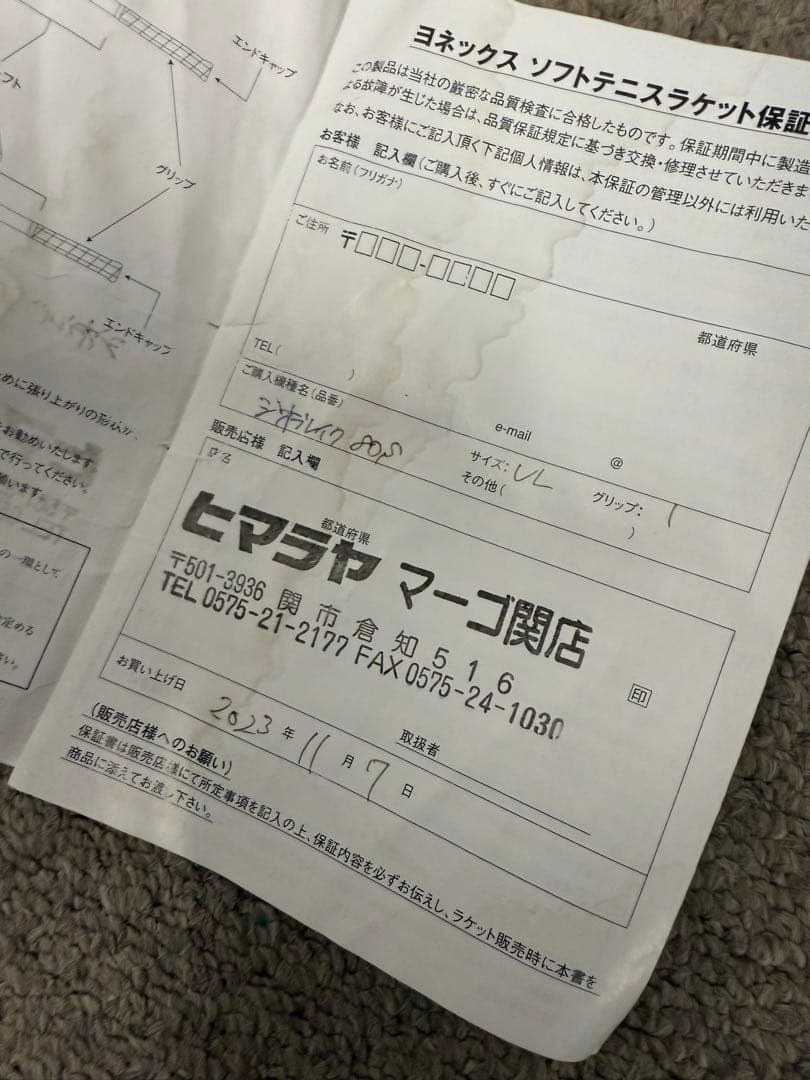 エンドキャップ
フト
グリップ
エンドキャップ
ために張り上がりの形状が、
お勧めいたします
で行ってください。
願います
の一環として
定める
さい。
ヨネックス ソフトテニスラケット保証
この製品は当社の厳密な品質検査に合格したものです。保証期間中に製造
よる故障が生じた場合は、品質保証規定に基づき交換・修理させていただきま
なお、お客様にご記入頂く下記個人情報は、本保証の管理以外には利用いた
お客様 記入欄(ご購入後、すぐにご記入してください。)
お名前(フリガナ)
ご住所
〒□□□-□□□□
都道府県
TEL( )
e-mail @
ご購入機種名(品番)
ジオブレイク 80S
サイズ: UL グリップ: 1
その他( )
販売店様 記入欄
店名
都道府県
ヒマラヤ マーゴ関店
〒501-3936 関市倉知516
TEL 0575-21-2177 FAX 0575-24-1030
印
お買い上げ日 2023 年 11 月 7 日
取扱者
(販売店様へのお願い)
保証書は販売店様にて所定事項を記入の上、保証内容を必ずお伝えし、ラケット販売時に本書を
商品に添えてお渡し下さい。